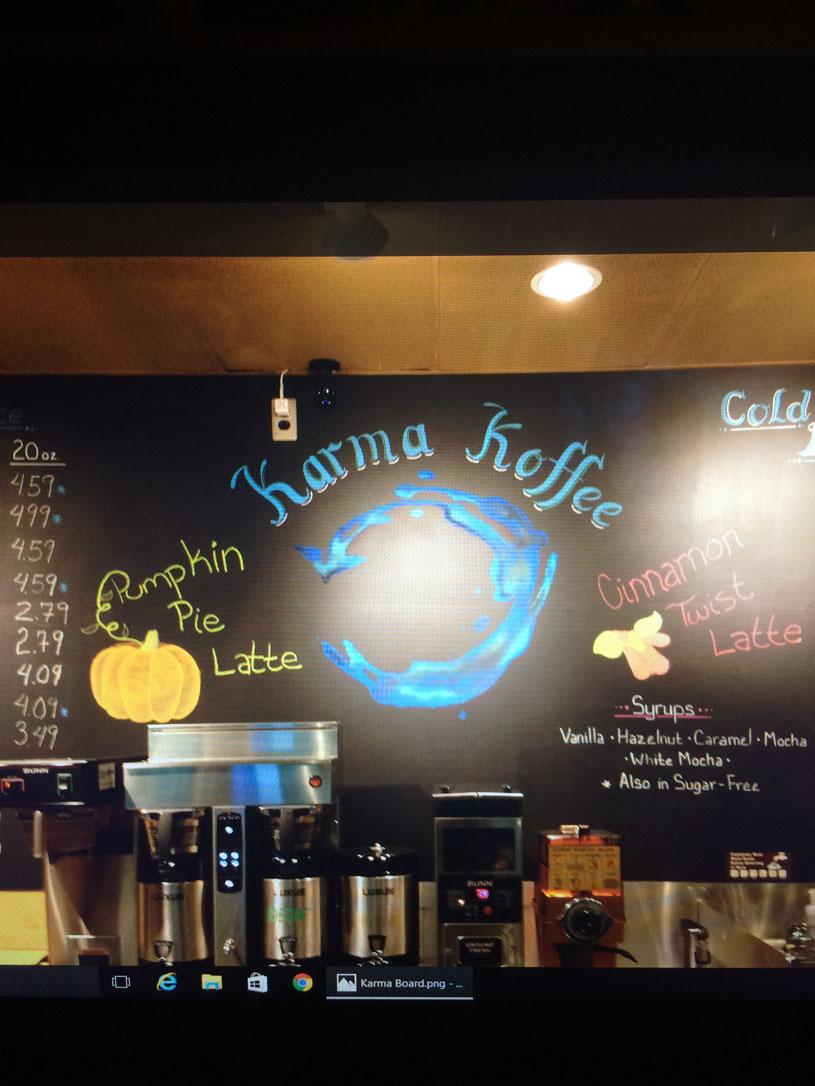 20oz
4.59*
4.99*
4.59
4.59*
2.79
2.79
4.09
4.09*
3.49
Karma Koffee
Pumpkin
Pie
Latte
Cold
Cinnamon
Twist
Latte
Syrups
Vanilla · Hazelnut · Caramel · Mocha
· White Mocha ·
* Also in Sugar-Free
BUNN
LUXUS
LUXUS
LUXUS
DECAF
BUNN
GROUND
FRESH
Karma Board.png - ...